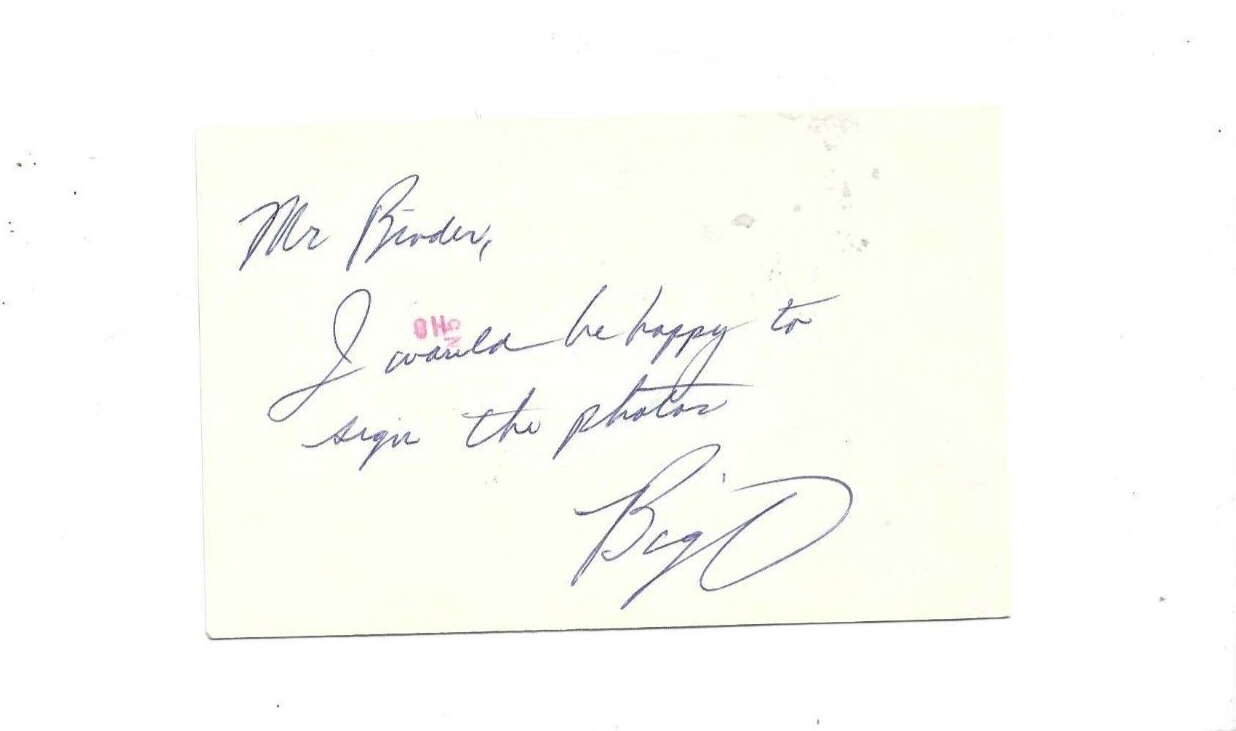 Mr Binder,
I would be happy to
sign the photos
Big D